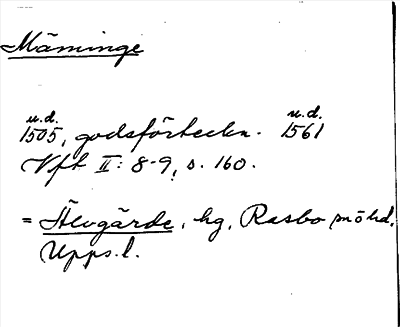 Mäminge
u.d. u.d.
1505, godsförteckn. 1561
Vft II: 8-9, s. 160.
= Älvgärde, hg, Rasbo snöhd,
Upps.l.